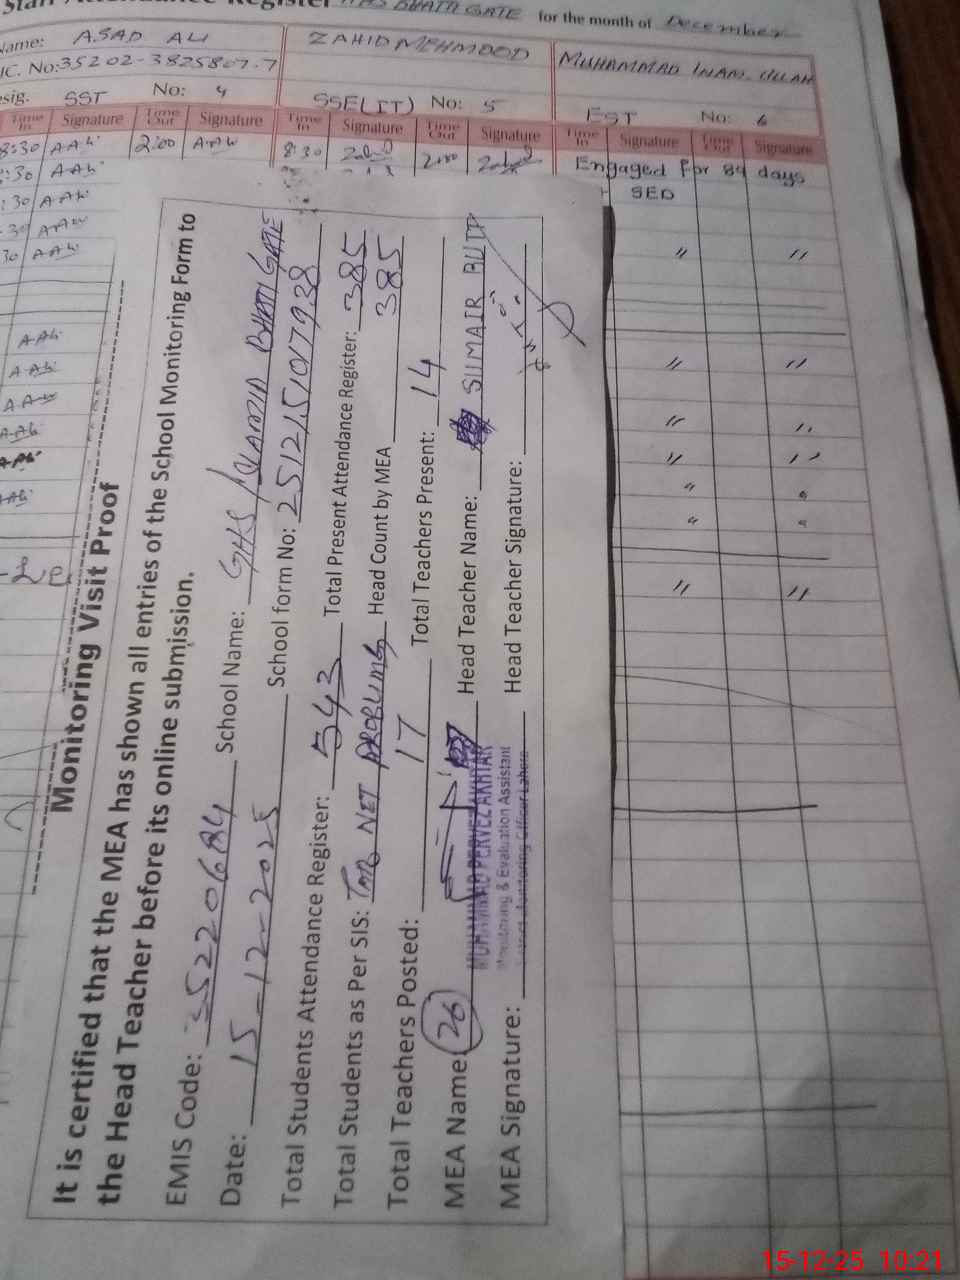 Staff Attendance Register HS BHATI GATE for the month of December
Name: ASAD ALI ZAHID MEHMOOD MUHAMMAD INAM ULLAH
IC. No: 35202-3825807-7
esig. SST No: 4 SSE(IT) No: 5 EST No: 6
Time In Signature Time Out Signature Time In Signature Time Out Signature Time In Signature Time Out Signature
8:30 AAli 2:00 AAli 8:30 Zahid 2:00 Zahid Engaged for 89 days
:30 AAli SED
:30 AAli
:30 AAli
30 AAli " "
AAli
AAli " "
AAli
AAli " "
AAli " "
AAli " "
" "
" "
Monitoring Visit Proof
It is certified that the MEA has shown all entries of the School Monitoring Form to
the Head Teacher before its online submission.
EMIS Code: 35220684 School Name: GHS BHATI GATE
Date: 15-12-2025 School form No: 2512151017938
Total Students Attendance Register: 543 Total Present Attendance Register: 385
Total Students as Per SIS: NET PROBLIMS Head Count by MEA 385
Total Teachers Posted: 17 Total Teachers Present: 14
MEA Name: 26 Head Teacher Name: SUMAIR BUTT
MUHAMMAD PERVEZ AKHTAR
Monitoring & Evaluation Assistant
District Monitoring Officer Lahore
MEA Signature: Head Teacher Signature:
15-12-25 10:21